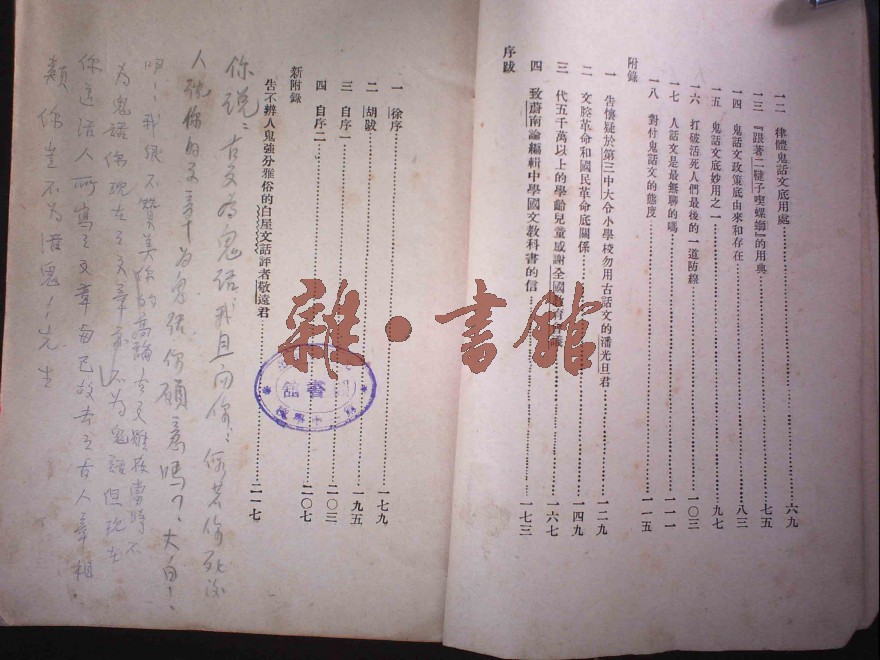 一二 律體鬼話文底用處 六九
一三 『跟著二犍子喫螺螄』的用典 七五
一四 鬼話文政策底由來和存在 八三
一五 鬼話文底妙用之一 九七
一六 打破活死人們最後的一道防線 一〇三
一七 人話文是最無聊的嗎 一一一
一八 對付鬼話文的態度 一一五
附錄
一 告懷疑於第三中大令小學校勿用古話文的潘光旦君 一二九
二 文腔革命和國民革命底關係 一四九
三 代五千萬以上的學齡兒童感謝全國教育會議 一六七
四 致蔚南論編輯中學國文教科書的信 一七三
序跋
一 徐序 一七九
二 胡跋 一九五
三 自序一 二〇三
四 自序二 二〇七
新附錄
告不辨人鬼強分雅俗的白屋文話評者敬遠君 二一七
你說：古文為鬼話我且向你：倘若你死後
人說你的文章十為鬼話你願意嗎？大白！
吧！我很不贊美你的高論古文雖在當時不
為鬼話你現在之文章亦不為鬼話但現在
你這活人所寫之文章與已故去之古人章相
類你豈不為活鬼！先生
雜·書館
書館